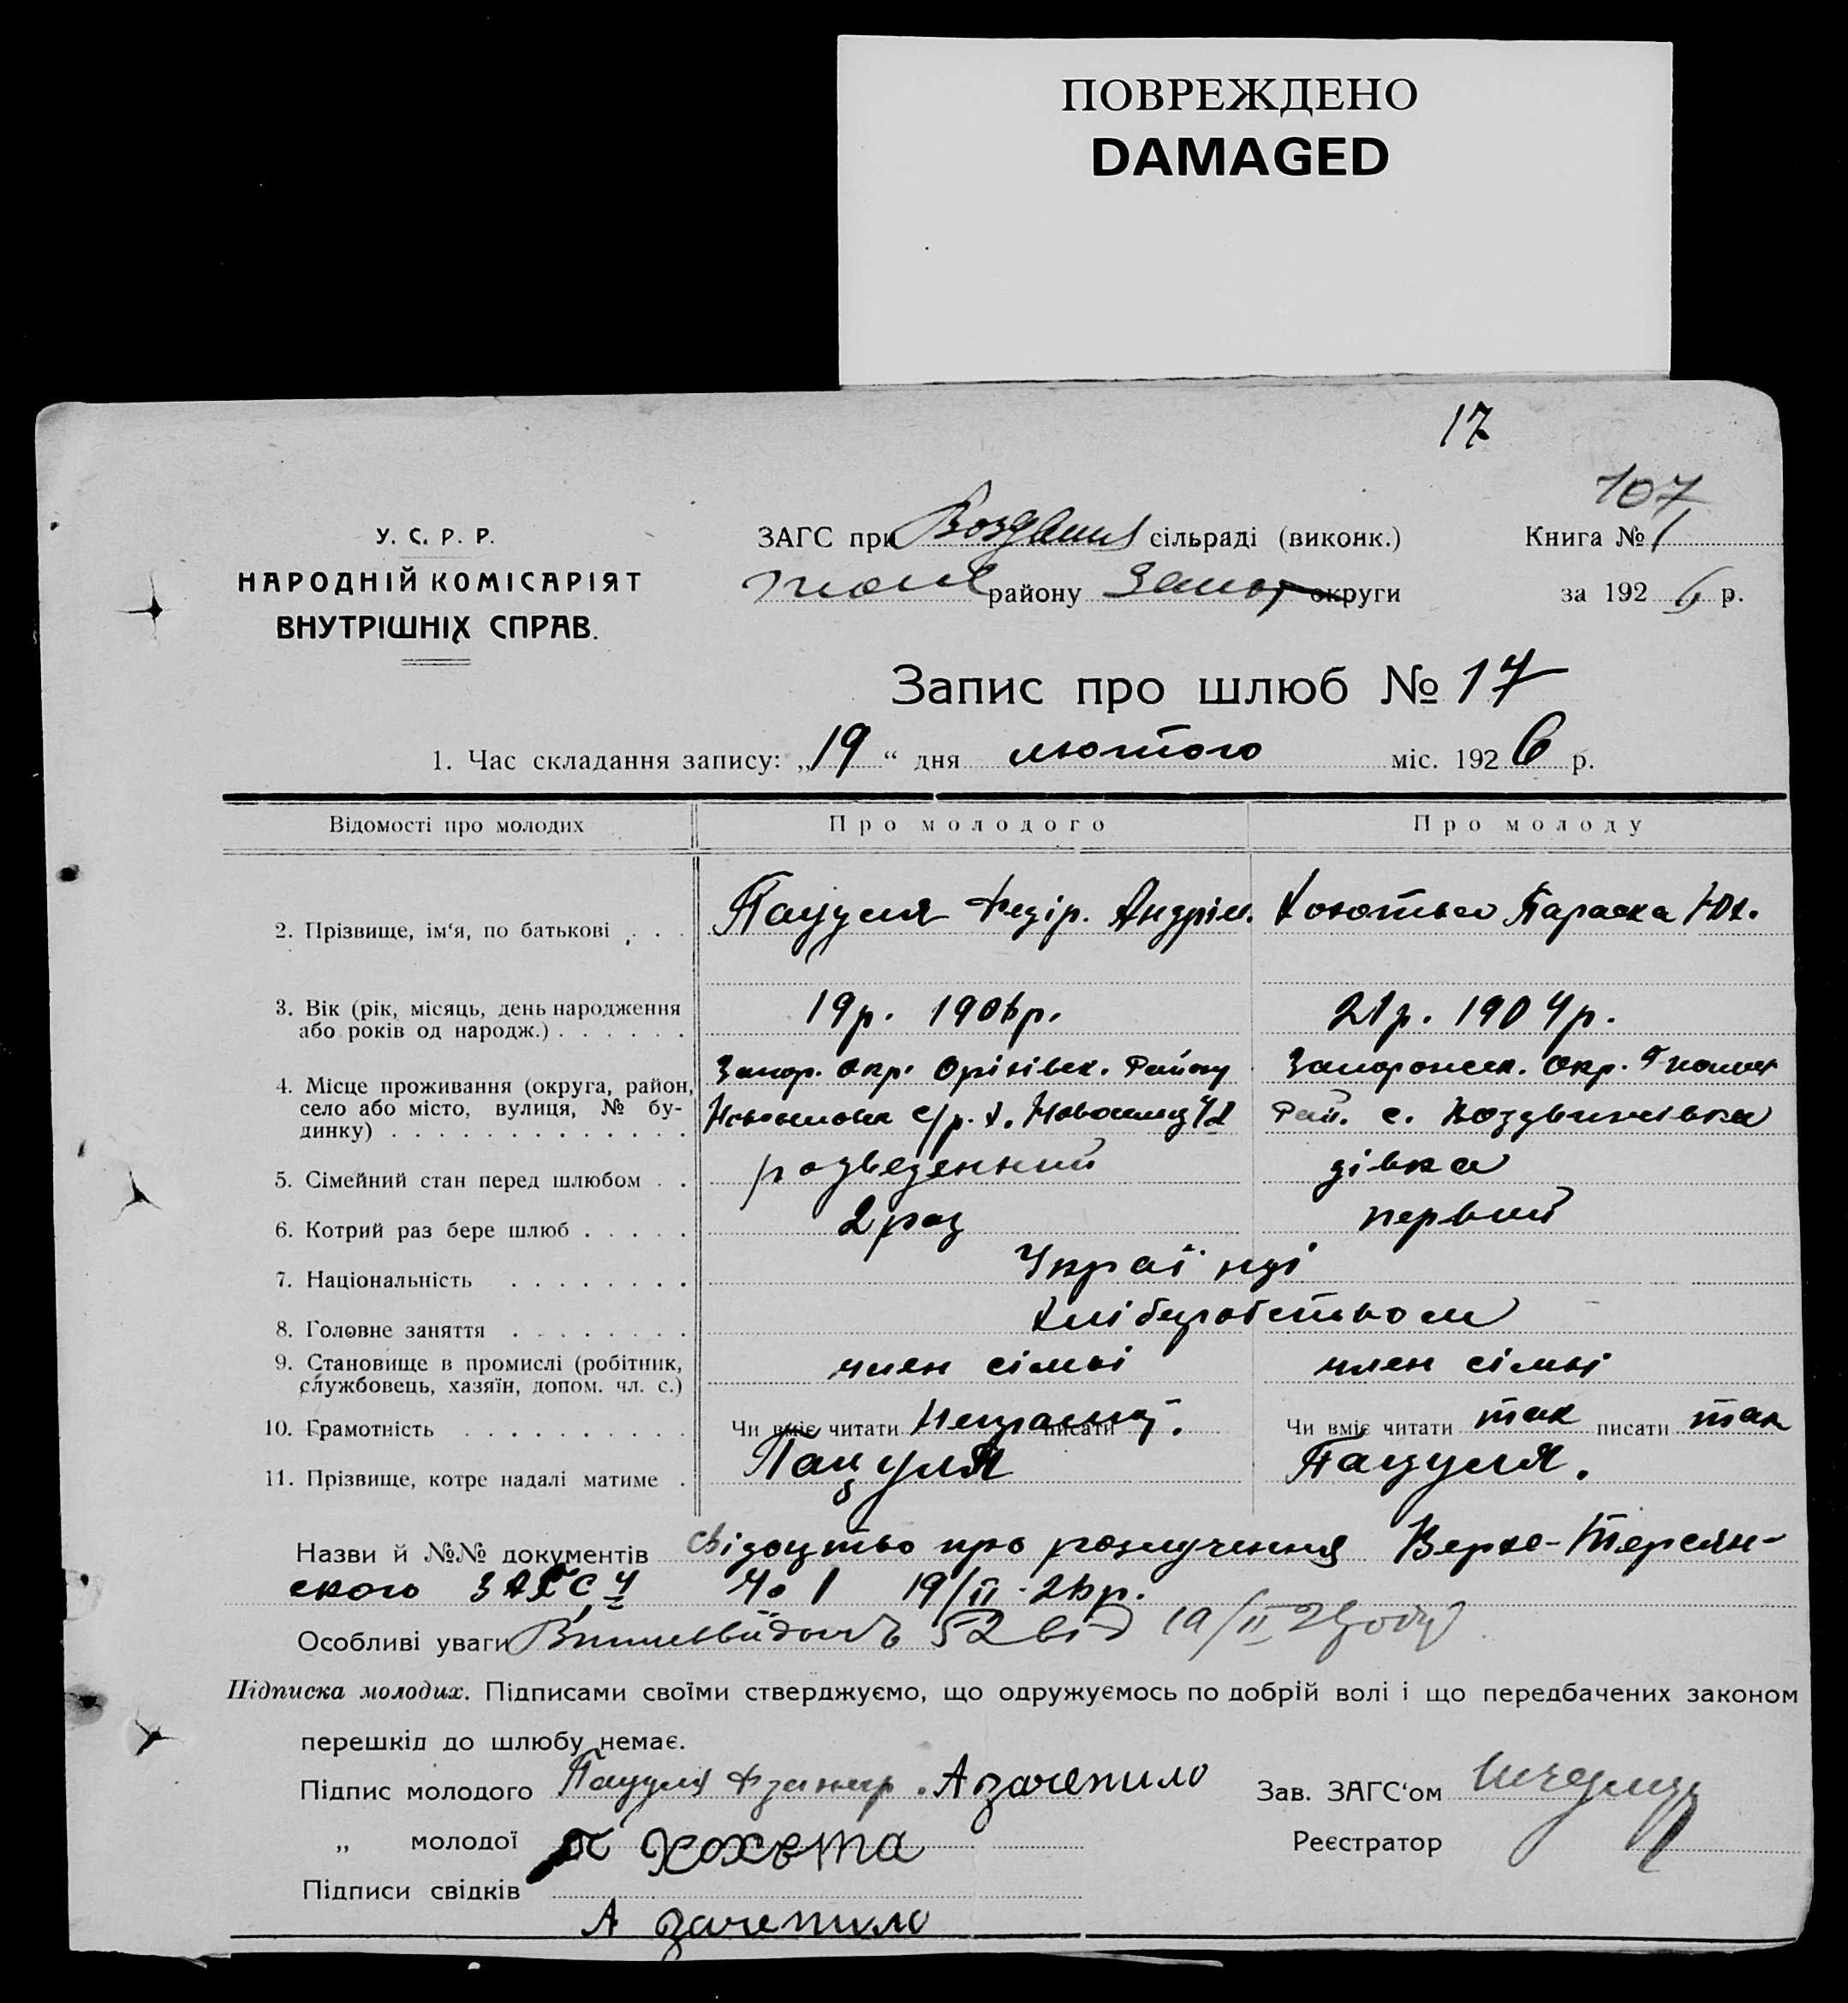 ПОВРЕЖДЕНО
DAMAGED
17
107
У. С. Р. Р.
НАРОДНІЙ КОМІСАРІЯТ
ВНУТРІШНІХ СПРАВ.
ЗАГС при сільраді (виконк.)
району Запор округи
Книга № 1
за 1926 р.
Запис про шлюб № 17
1. Час складання запису: „19“ дня лютого міс. 1926 р.
Відомості про молодих
Про молодого
Про молоду
2. Прізвище, ім‘я, по батькові . . .
Пацуля Федір. Андрій.
Параска Юх.
3. Вік (рік, місяць, день народження
або років од народж.) . . . . . .
19р. 1906р.
21р. 1904р.
4. Місце проживання (округа, район,
село або місто, вулиця, № бу-
динку) . . . . . . . . . . . . .
Запор. Окр. Оріхівск. Району
с/р. х.
Запорожск. Окр.
Рай. с. Воздвижівка
5. Сімейний стан перед шлюбом . .
розведенний
дівка
6. Котрий раз бере шлюб . . . . .
2 раз
первий
7. Національність . . . . . . . .
Українці
8. Головне заняття . . . . . . . .
хліборобством
9. Становище в промислі (робітник,
службовець, хазяїн, допом. чл. с.)
член сімьі
член сімьі
10. Грамотність . . . . . . . . . .
Чи вміє читати писати
Чи вміє читати так писати так
11. Прізвище, котре надалі матиме .
Пацуля
Пацуля.
Назви й №№ документів свідоцтво про розлучення Верхо-Терсян-
ского ЗАГСу № 1 19/ІІ-26р.
Особливі уваги 52 від 19/ІІ
Підписка молодих. Підписами своїми стверджуємо, що одружуємось по добрій волі і що передбачених законом
перешкід до шлюбу немає.
Підпис молодого Пацуля А зачепило
Зав. ЗАГС‘ом
„ молодої П Хохьта
Реєстратор
Підписи свідків
А зачепило